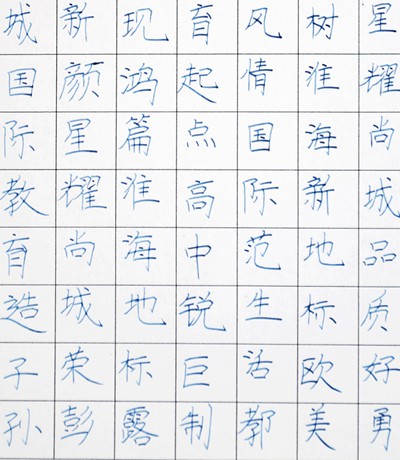 星耀尚城品质好勇
树淮海新地标欧美
风情国际范生活
育起点高中锐巨制
现鸿篇淮海地标露
新颜星耀尚城荣彭
城国际教育造子孙